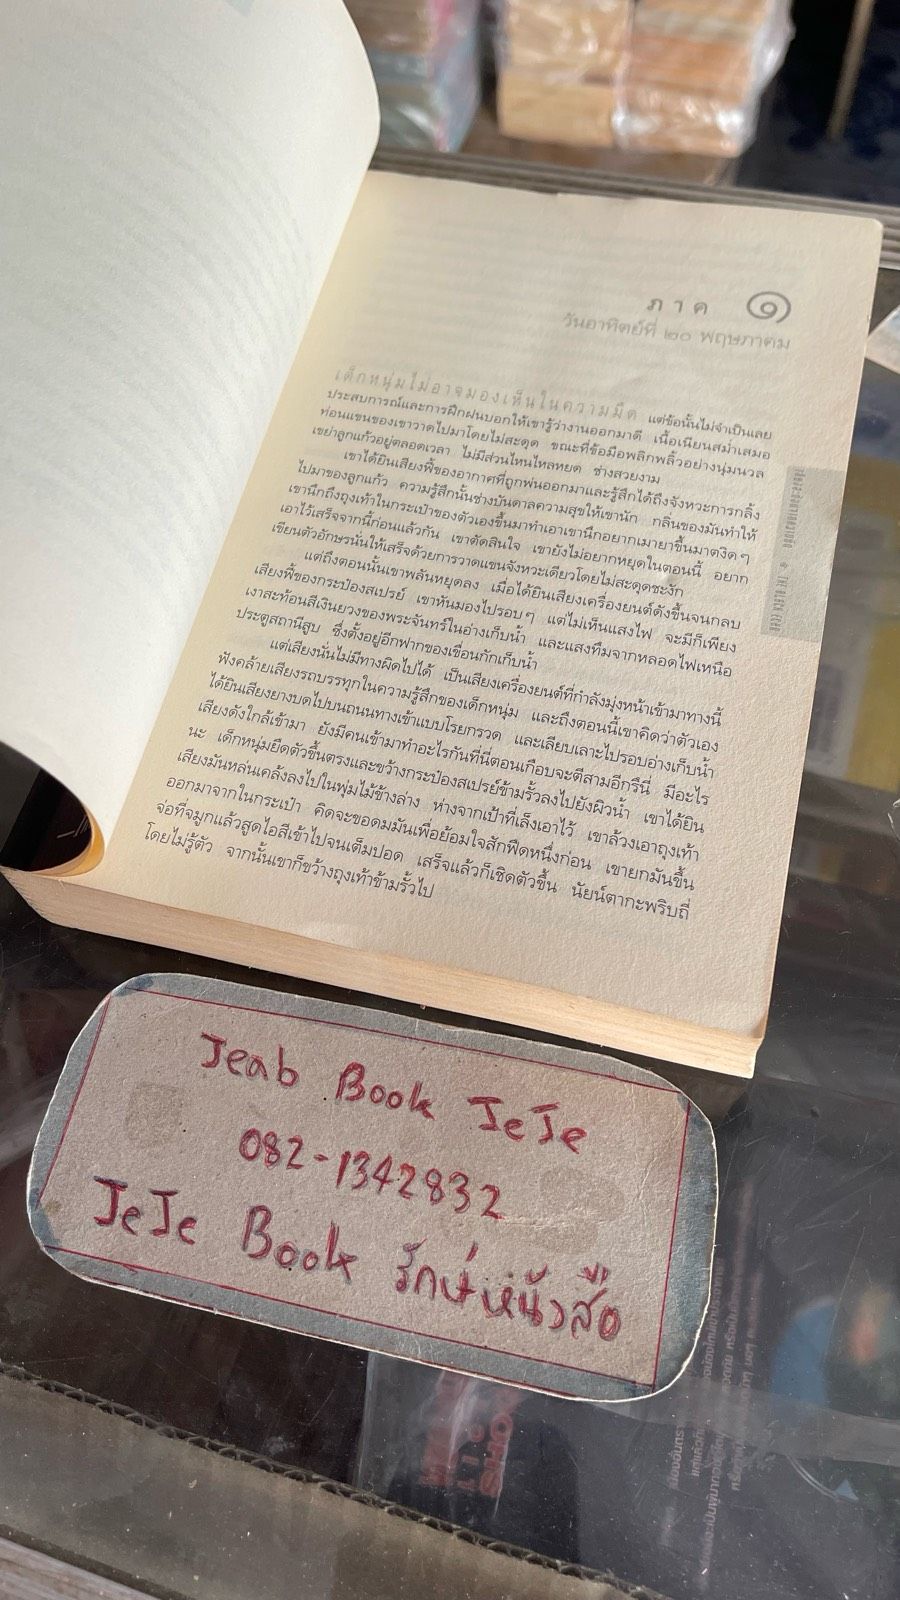 ภาค ๑
วันอาทิตย์ที่ ๒๐ พฤษภาคม
เด็กหนุ่มไม่อาจมองเห็นในความมืด แต่ข้อนั้นไม่จำเป็นเลย
ประสบการณ์และการฝึกฝนบอกให้เขารู้ว่างานออกมาดี เนื้อเนียนสม่ำเสมอ
ท่อนแขนของเขาวาดไปมาโดยไม่สะดุด ขณะที่ข้อมือพลิกพลิ้วอย่างนุ่มนวล
เขย่าลูกแก้วอยู่ตลอดเวลา ไม่มีส่วนไหนไหลหยด ช่างสวยงาม
เขาได้ยินเสียงฟี้ของอากาศที่ถูกพ่นออกมาและรู้สึกได้ถึงจังหวะการกลิ้ง
ไปมาของลูกแก้ว ความรู้สึกนั้นช่างบันดาลความสุขให้เขานัก กลิ่นของมันทำให้
เขานึกถึงถุงเท้าในกระเป๋าของตัวเองขึ้นมาทำเอาเขานึกอยากเมายาขึ้นมาตงิดๆ
เอาไว้เสร็จจากนี้ก่อนแล้วกัน เขาตัดสินใจ เขายังไม่อยากหยุดในตอนนี้ อยาก
เขียนตัวอักษรนั่นให้เสร็จด้วยการวาดแขนจังหวะเดียวโดยไม่สะดุดชะงัก
แต่ถึงตอนนั้นเขาพลันหยุดลง เมื่อได้ยินเสียงเครื่องยนต์ดังขึ้นจนกลบ
เสียงฟี้ของกระป๋องสเปรย์ เขาหันมองไปรอบๆ แต่ไม่เห็นแสงไฟ จะมีก็เพียง
เงาสะท้อนสีเงินยวงของพระจันทร์ในอ่างเก็บน้ำ และแสงทึมจากหลอดไฟเหนือ
ประตูสถานีสูบ ซึ่งตั้งอยู่อีกฟากของเขื่อนกักเก็บน้ำ
แต่เสียงนั่นไม่มีทางผิดไปได้ เป็นเสียงเครื่องยนต์ที่กำลังมุ่งหน้าเข้ามาทางนี้
ฟังคล้ายเสียงรถบรรทุกในความรู้สึกของเด็กหนุ่ม และถึงตอนนี้เขาคิดว่าตัวเอง
ได้ยินเสียงยางบดไปบนถนนทางเข้าแบบโรยกรวด และเลียบเลาะไปรอบอ่างเก็บน้ำ
เสียงดังใกล้เข้ามา ยังมีคนเข้ามาทำอะไรกันที่นี่ตอนเกือบจะตีสามอีกรึนี่ มีอะไร
นะ เด็กหนุ่มยืดตัวขึ้นตรงและขว้างกระป๋องสเปรย์ข้ามรั้วลงไปยังผิวน้ำ เขาได้ยิน
เสียงมันหล่นเคล้งลงไปในพุ่มไม้ข้างล่าง ห่างจากเป้าที่เล็งเอาไว้ เขาล้วงเอาถุงเท้า
ออกมาจากในกระเป๋า คิดจะขอดมมันเพื่อย้อมใจสักฟืดหนึ่งก่อน เขายกมันขึ้น
จ่อที่จมูกแล้วสูดไอสีเข้าไปจนเต็มปอด เสร็จแล้วก็เชิดตัวขึ้น นัยน์ตากะพริบถี่
โดยไม่รู้ตัว จากนั้นเขาก็ขว้างถุงเท้าข้ามรั้วไป
Jeab Book JeJe
082-1342832
JeJe Book รักษ์หนังสือ